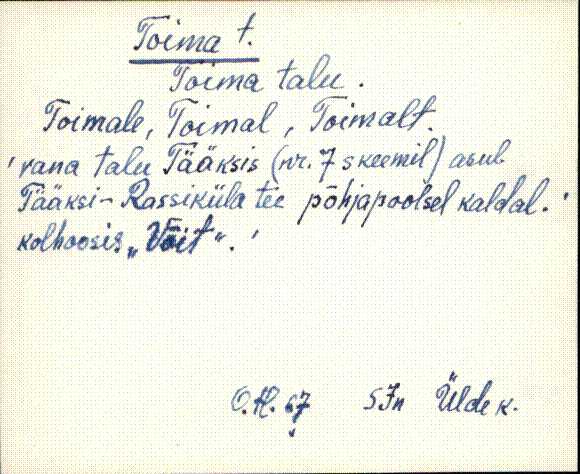 Toima t.
Toima talu.
Toimale, Toimal, Toimalt.
'vana talu Tääksis (nr. 7 skeemil) asub
Tääksi - Rassiküla tee põhjapoolsel kaldal.'
kolhoosis „Võit“.'
O.H. 67 SJn Ülde k.